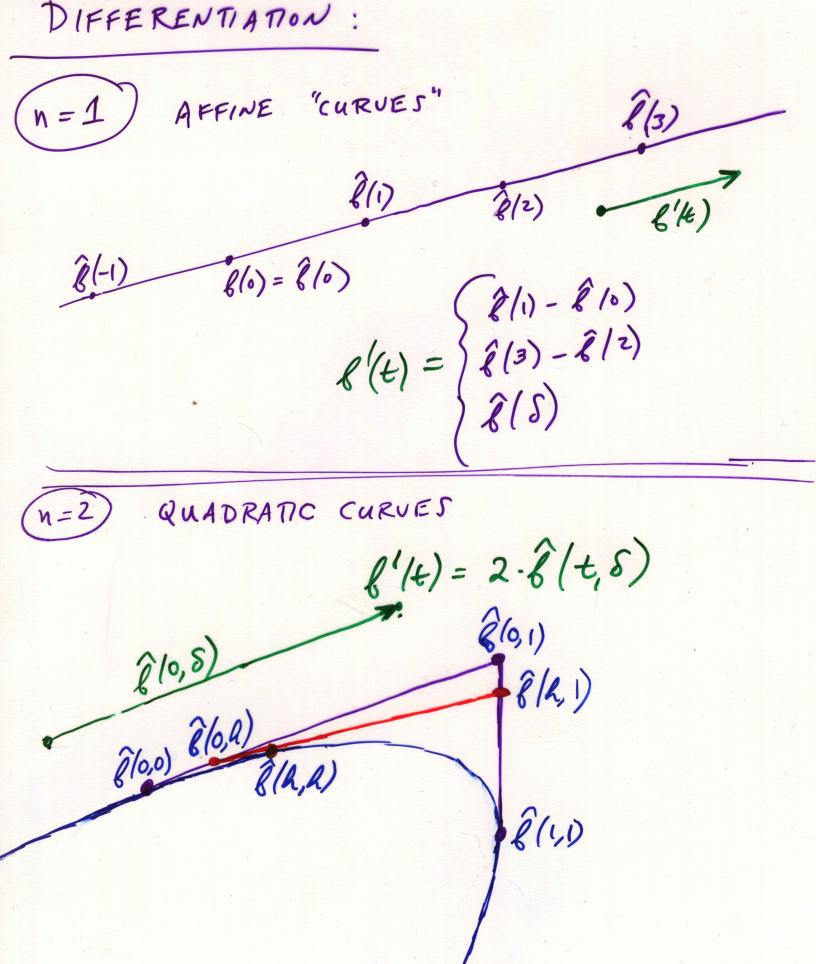 DIFFERENTIATION :
n = 1 AFFINE "CURVES"
b̂(3)
b̂(1)
b̂(2)
b'(t)
b̂(-1)
b(0) = b̂(0)
b̂(1) - b̂(0)
b'(t) = b̂(3) - b̂(2)
b̂(δ)
n=2 QUADRATIC CURVES
b'(t) = 2·b̂(t,δ)
b̂(0,1)
b̂(0,δ)
b̂(h,1)
b̂(0,h)
b̂(0,0)
b̂(h,h)
b̂(1,1)